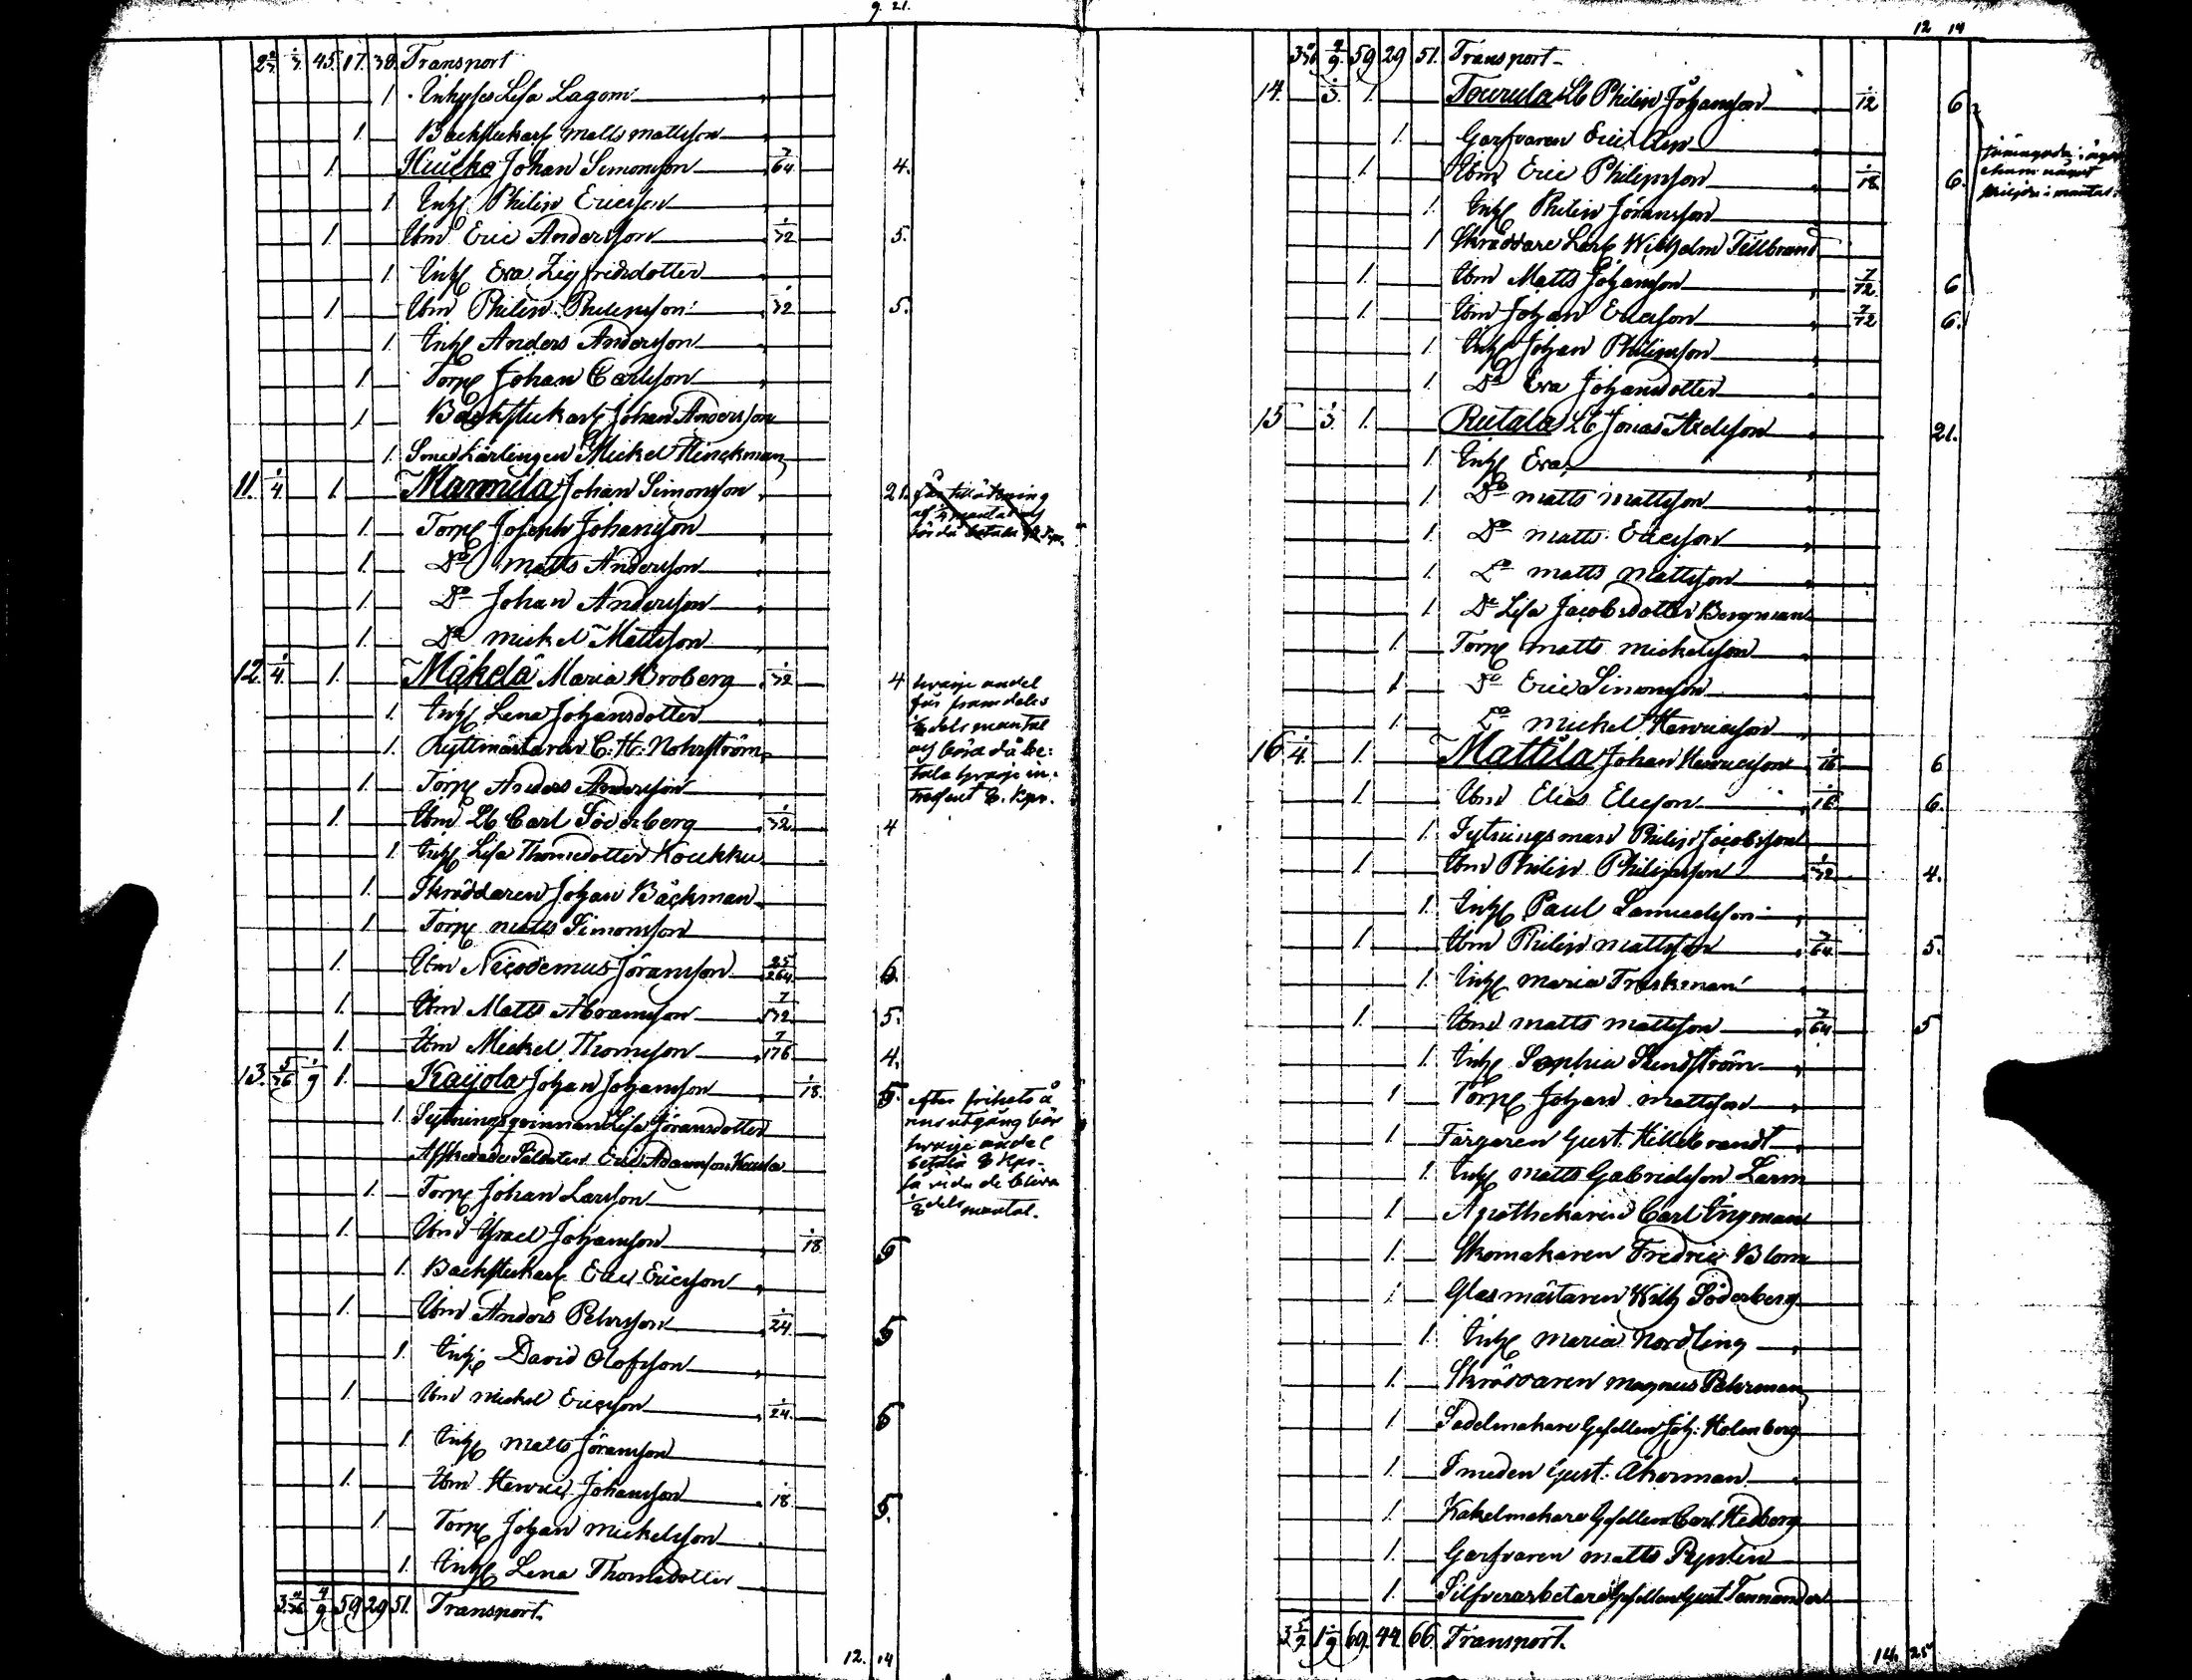 9. 21.
45. 17. 38. Transport
1 Inhyses Lisa Lagom
1. Backstukarl Matts Mattsson
1. Kiucko Johan Simonsson 7/64 4.
1 Inh Philip Ericsson
1. Ibm Eric Andersson 1/32 5.
1. Inh Eva Zigfridsdotter
1 Ibm Philip Philipsson 1/32 5.
1. Inh Anders Andersson
1 Torp Johan Carlsson
1 Backstukarl Johan Andersson
1. Smedkärlingen Mickel
11. 1/4 1. Mannila Johan Simonsson 21.
1. Torp Joseph Johansson
1. Do Matts Andersson
1. Do Johan Andersson
1. Do Mickel Mattsson
12. 1/4. 1. Mäkelä Maria Broberg 1/32 4
hvarje andel
1. Inh Lena Johansdotter
1. Ryttmästaren C. H. Nohrström
1. Torp Anders Andersson
1. Ibm Lb Carl Söderberg 1/32 4
1. Inh Lisa Thomedotter Koukku
1. Skräddaren Johan Bäckman
1. Torp Matts Simonsson
1. Ibm Nicodemus Jöransson 25/264 6.
1. Ibm Matts Abramsson 5.
1. Ibm Mickel Thomsson 7/176 4.
13. 5/36 1/9 1. Kaijola Johan Johansson 1/18. 5.
efter frihets å
rens utgång bör
hvarje andel
betala 8 Kpr.
så vida de blifva
1/8 dels mantal.
1. Sytningsqvinnan Lisa Jöransdotter
Afskedade Soldaten Eric Adamsson
1. Torp Johan Larsson
1. Ibm Israel Johansson 1/18 5
1. Backstukarl Eric Ericsson
1. Ibm Anders Pehrsson 1/24. 5
1. Inh David Olofsson
1. Ibm Mickel Ericsson 1/24. 5
1. Inh Matts Jöransson
1. Ibm Henric Johansson 18 5.
1. Torp Johan Mickelsson
1. Inh Lena Thomedotter
4/9 59 29 51. Transport.
12. 14
12 14
59 29 51. Transport
14. 1/3. 1. Tourula Lb Philip Johansson 1/12 6
1. Garfvaren Eric Asp
1. Ibm Eric Philipsson 1/18. 6.
1. Inh Philip Jöransson
1 Skräddare Lärl Wilhelm Tillbrand
1. Ibm Matts Johansson 7/72. 6
1. Ibm Johan Ericsson 7/72 6.
1. Inh Johan Philipsson
1. Do Eva Johansdotter
15 1/3. 1. Rutala Lb Jonas Axelsson 21.
1. Inh Eva
1. Do Matts Mattsson
1. Do Matts Ericsson
1. Do Matts Mattsson
1. Do Lisa Jacobsdotter Bergman
1. Torp Matts Mickelsson
1. Do Eric Simonsson
1. Do Mickel Henricsson
16 1/4. 1. Mattila Johan Henricsson 1/16. 6
1. Ibm Elias Eliesson 1/16. 6.
1. Sytningsman Philip Jacobsson
1. Ibm Philip Philipsson 1/32. 4.
1. Inh Paul Samuelsson
1. Ibm Philip Mattsson 7/64. 5.
1. Inh Maria Traskman
1. Ibm Matts Mattsson 7/64 5
1. Inh Sophia Sundström
1 Torp Johan Mattsson
1. Färgaren Gust. Hillebrandt
1. Inh Matts Gabrielsson Larm
1. Apothekaren Carl Engman
1. Skomakaren Fredric Blom
1. Glasmästaren Wilh Söderberg
1. Inh Maria Nordling
1. Skräddaren Magnus Pehrman
1. Sadelmakare Gesellen Joh: Holmberg
1. Smeden Gust. Åkerman
1. Kakelmakare Gesellen Carl Hedberg
1. Garfvaren Matts
1. Silfverarbetare Gesellen Gust Tennander
1/9 69. 44. 66. Transport.
14. 25